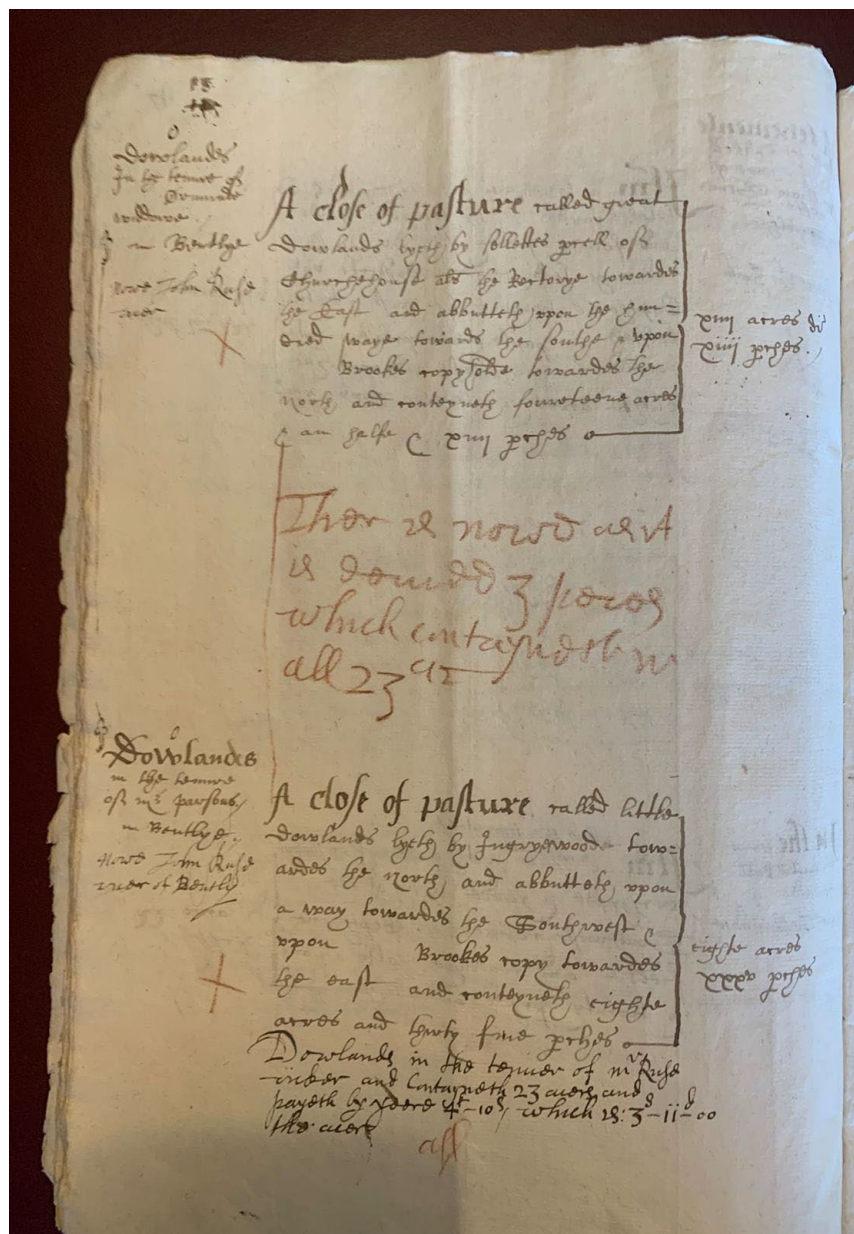 Dowlandes
In the tenure of
widdowe
in Bentlye
nowe John Ruse
A close of pasture called great
Dowlands lyeth by sellettes pcell off
Churchehouse als the Rectorye towardes
the East and abbutteth upon the
waye towards the southe & upon
Brookes copyholde towardes the
North and conteyneth fowreteene acres
& an halfe & xiiii pches
xiiii acres di
xiiii pches
Ther is nowe
is devided 3 peces
which contayneth in
all 23 ac
Dowlandes
in the tenure
off mrs parsons
in Bentlye
nowe John Ruse
of Bently
A close of pasture called little
Dowlands lyeth by Ingryewoode tow=
ardes the north and abbutteth upon
a way towardes the Southwest &
upon Brookes copy towardes
the east and conteyneth eighte
acres and thirty five pches
eighte acres
xxxv pches
Dowlands in the tenuer of mr Ruse
and Contayneth 23 acers and
payeth by yeere 4l-10s, which is: 3s-11d-00
the acere
all